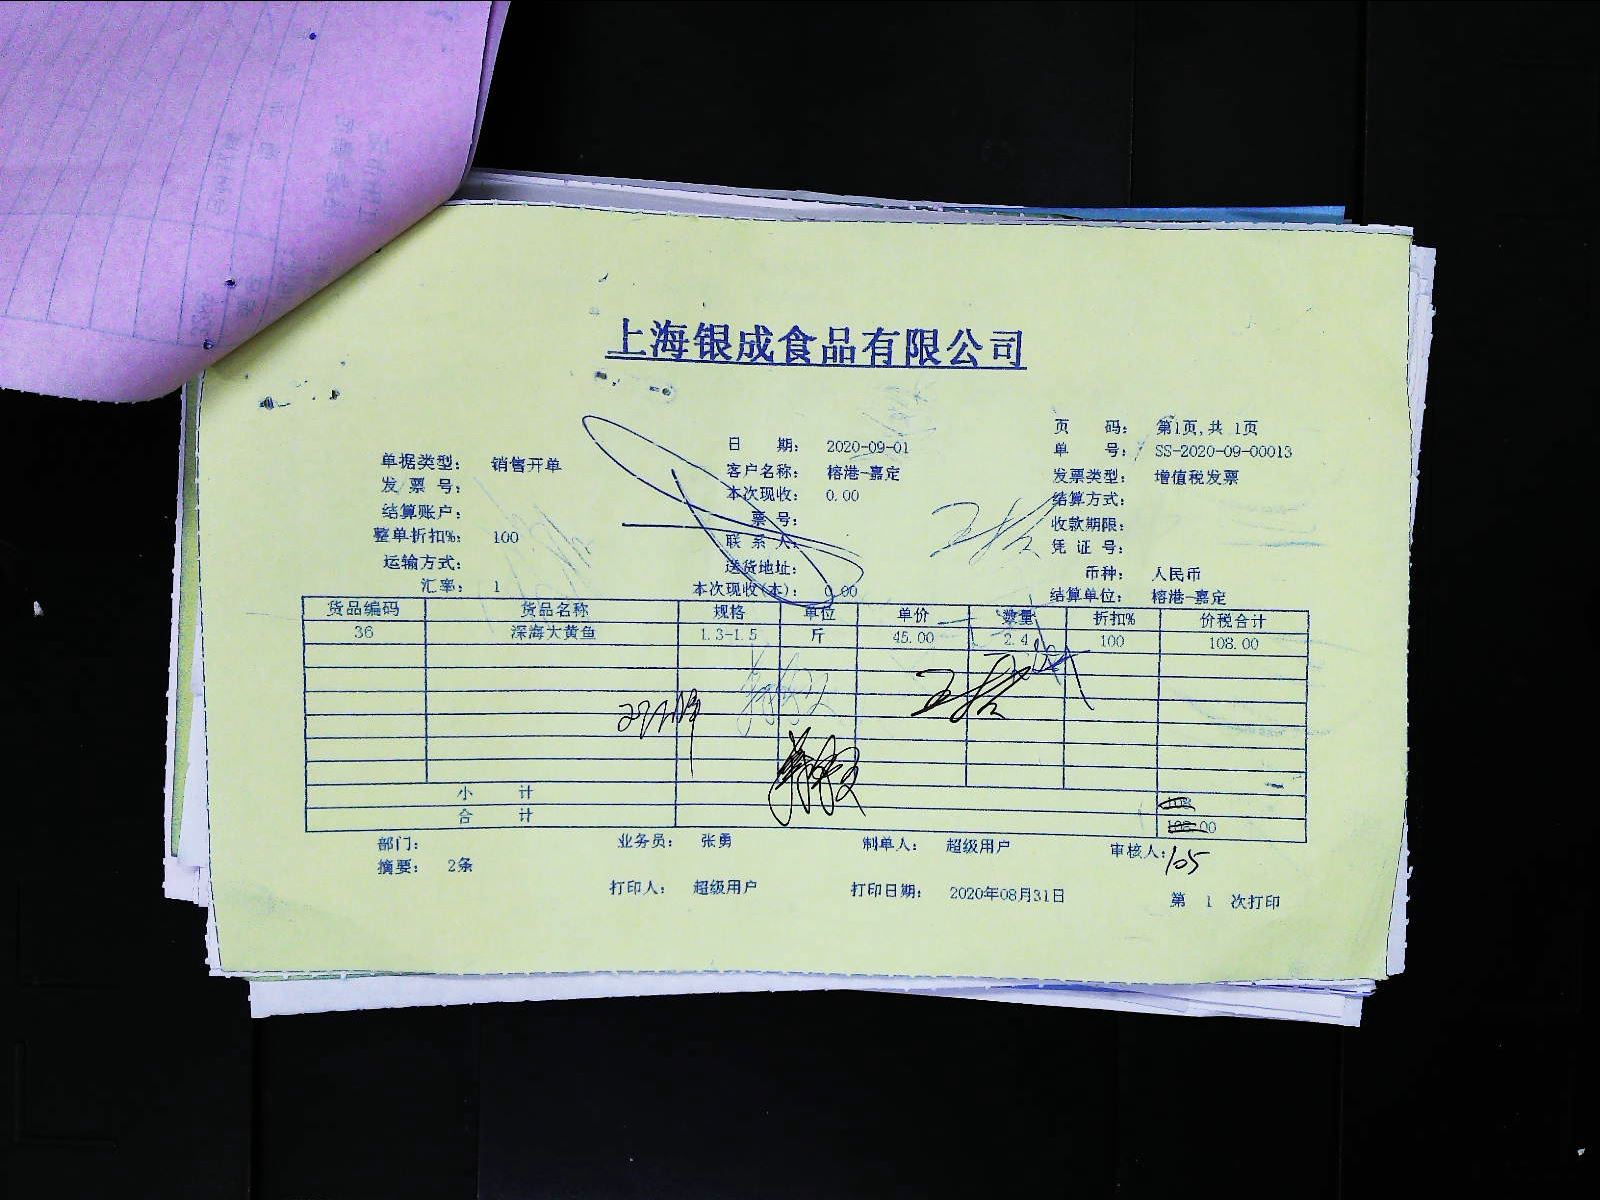 上海银成食品有限公司
页 码： 第1页,共 1页
日 期： 2020-09-01 单 号： SS-2020-09-00013
单据类型： 销售开单 客户名称： 榕港-嘉定 发票类型： 增值税发票
发 票 号： 本次现收： 0.00 结算方式：
结算账户： 票 号： 收款期限：
整单折扣%： 100 联 系 人： 凭 证 号：
运输方式： 送货地址： 币种： 人民币
汇率： 1 本次现收(本)： 0.00 结算单位： 榕港-嘉定
货品编码 货品名称 规格 单位 单价 数量 折扣% 价税合计
36 深海大黄鱼 1.3-1.5 斤 45.00 2.4 100 108.00
小 计
合 计 108.00
部门： 业务员： 张勇 制单人： 超级用户 审核人： 105
摘要： 2条
打印人： 超级用户 打印日期： 2020年08月31日 第 1 次打印